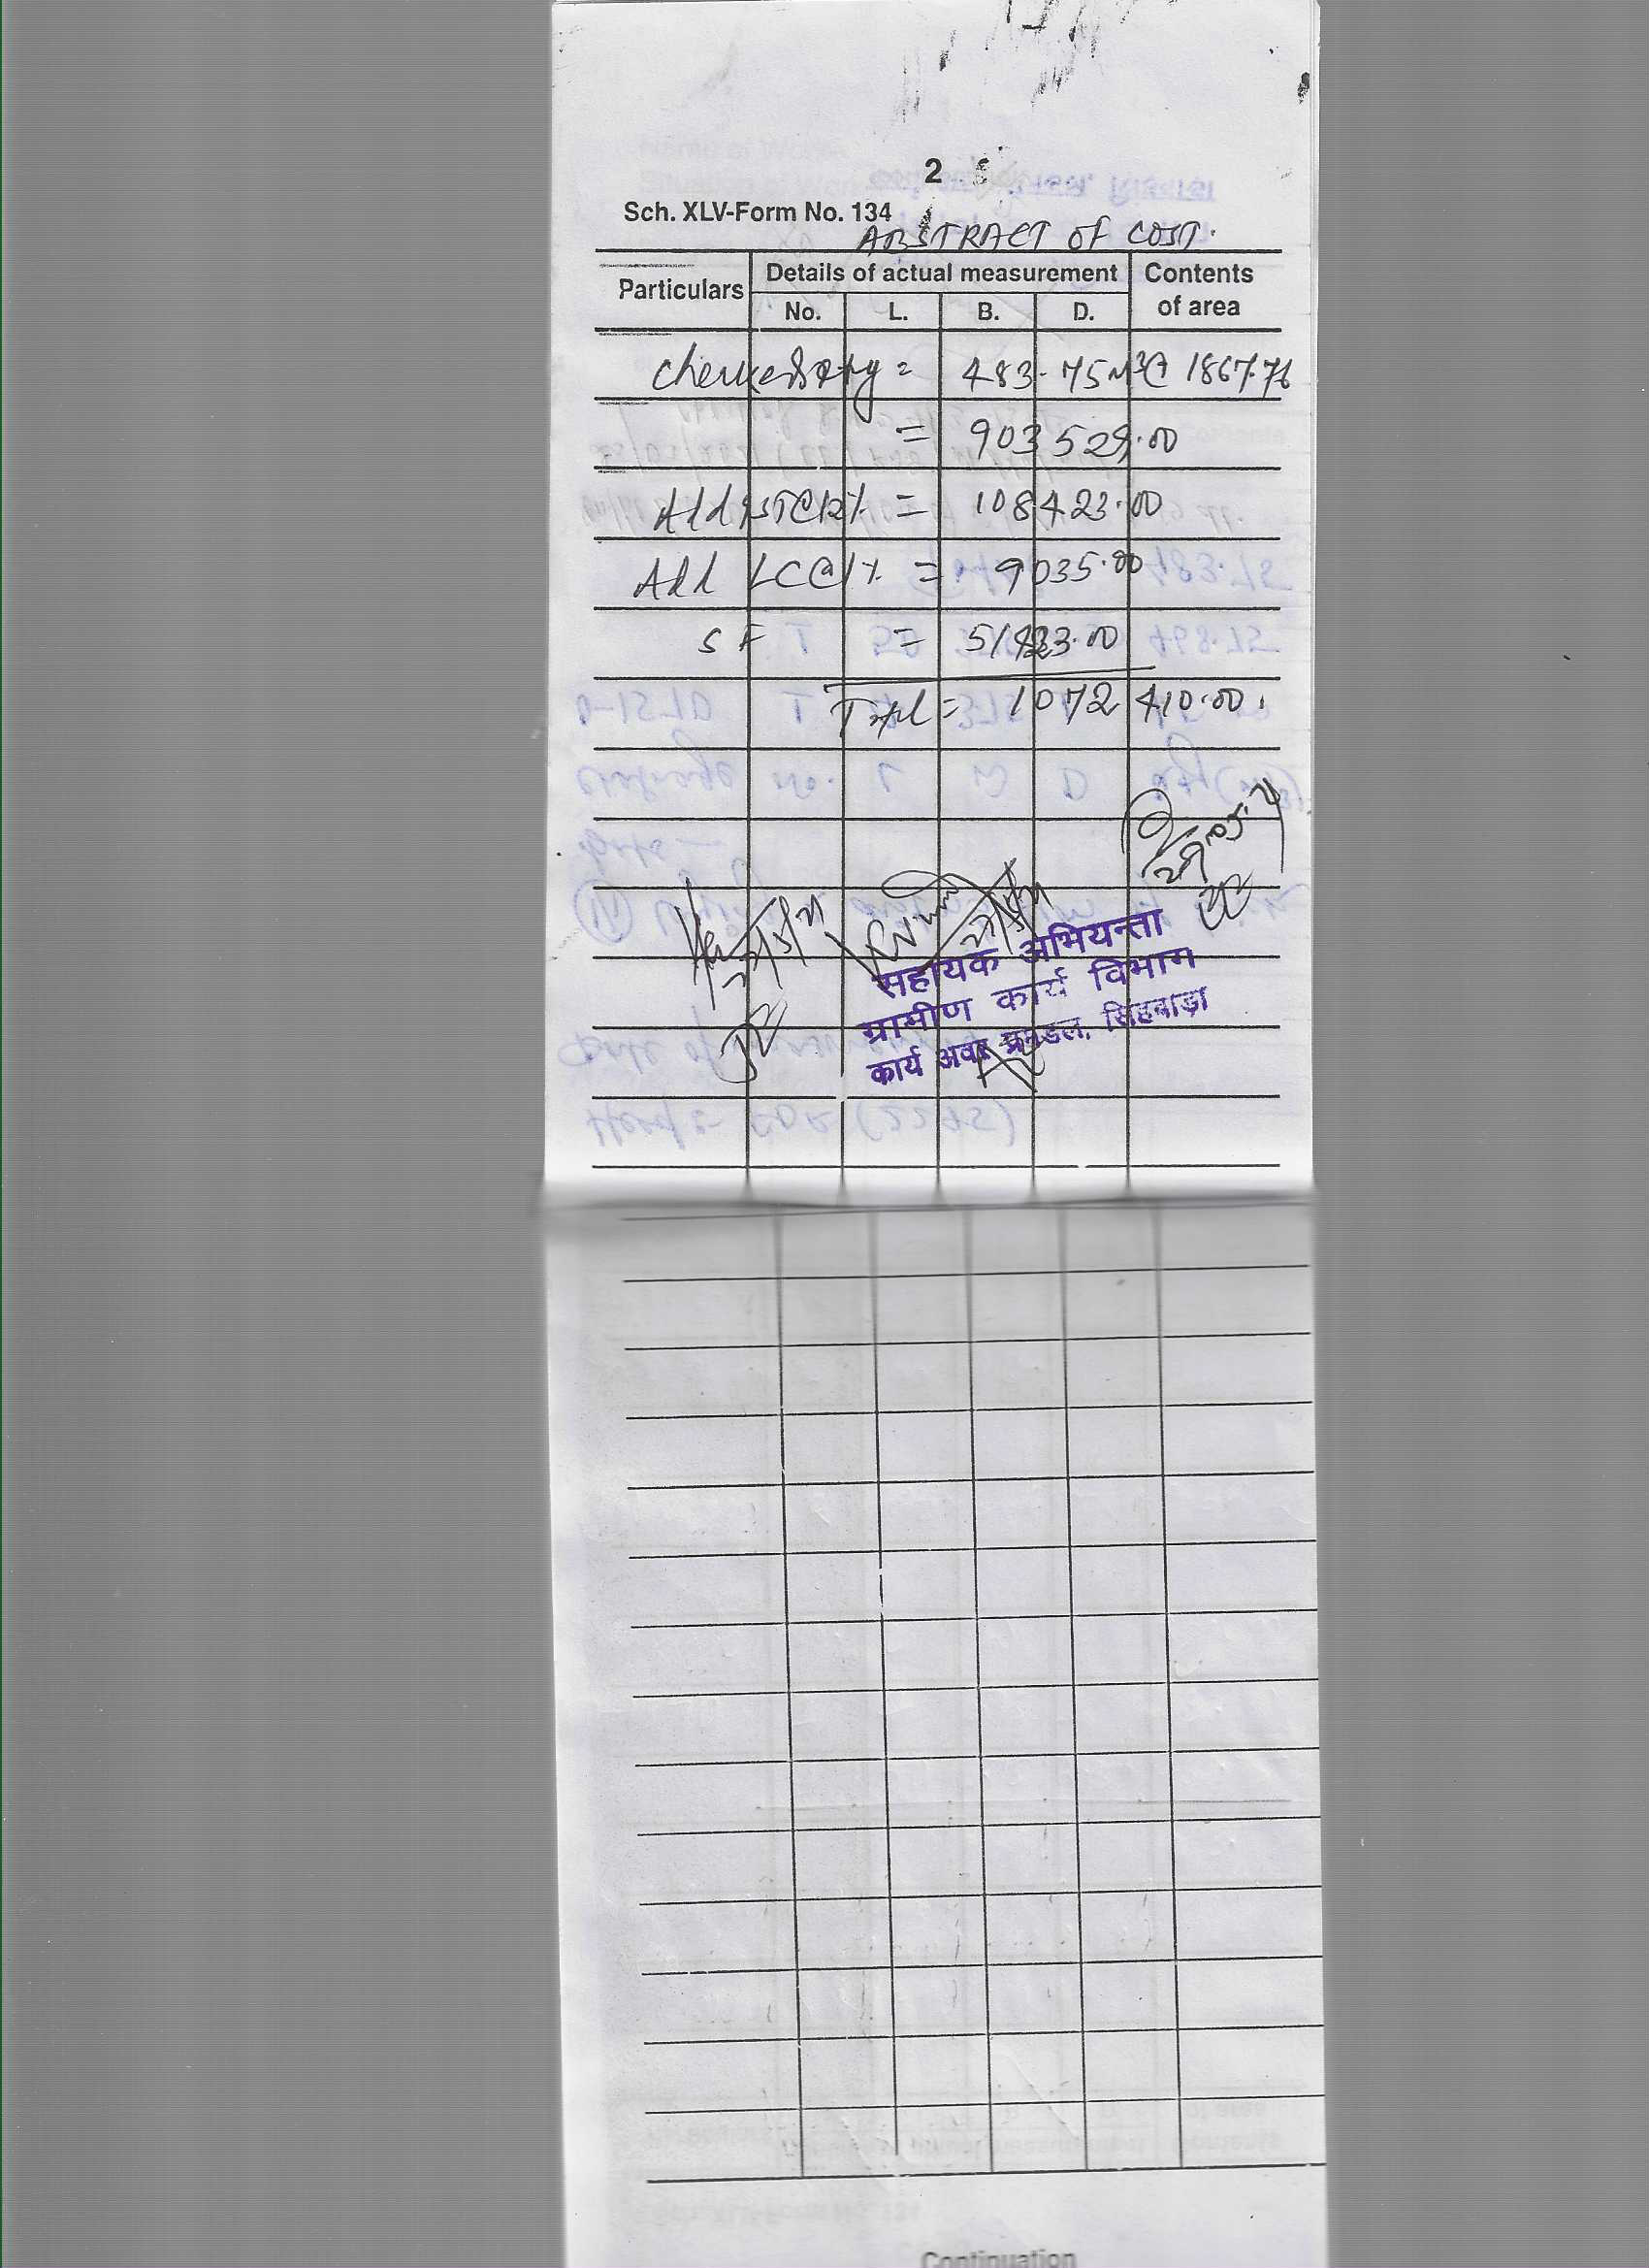 2
Sch. XLV-Form No. 134
ABSTRACT OF COST.
Particulars
Details of actual measurement
Contents of area
No. L. B. D.
= 483.75 M3 @ 1867.76
= 903529.00
Add GST@12% = 108423.00
Add LC@1% = 9035.00
SF = 51423.00
Total = 1072410.00
JE
सहायक अभियन्ता
ग्रामीण कार्य विभाग
कार्य अवर प्रमंडल, सिंहवाड़ा
AE
Continuation